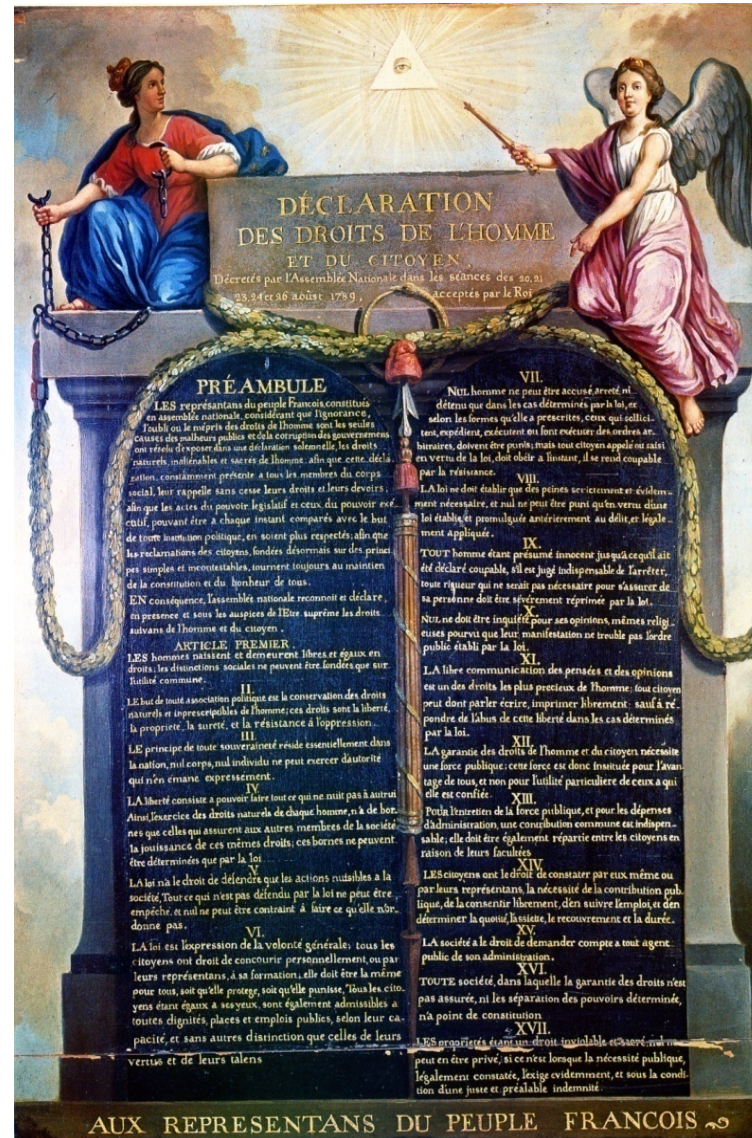 DÉCLARATION
DES DROITS DE L'HOMME
ET DU CITOYEN,
Décretés par l'Assemblée Nationale dans les séances des 20, 21
23, 24 et 26 aoûst 1789, acceptés par le Roi
PRÉAMBULE
LES représentans du peuple Francois, constitués
en assemblée nationale, considérant que l'ignorance,
l'oubli ou le mépris des droits de l'homme sont les seules
causes des malheurs publics et de la corruption des gouvernemens
ont résolu d'exposer dans une déclaration solemnelle, les droits
naturels, inaliénables et sacrés de l'homme; afin que cette décla
ration, constamment présente a tous les membres du corps
social, leur rappelle sans cesse leurs droits et leurs devoirs;
afin que les actes du pouvoir legislatif et ceux du pouvoir exé
cutif, pouvant être a chaque instant comparés avec le but
de toute institution politique, en soient plus respectés; afin que
les reclamations des citoyens, fondées désormais sur des princi
pes simples et incontestables, tournent toujours au maintien
de la constitution et du bonheur de tous.
EN conséquence, l'assemblée nationale reconnoit et déclare,
en presence et sous les auspices de l'Etre suprême les droits
suivans de l'homme et du citoyen.
ARTICLE PREMIER.
LES hommes naissent et demeurent libres et égaux en
droits; les distinctions sociales ne peuvent être fondées que sur
l'utilité commune.
II.
LE but de toute association politique est la conservation des droits
naturels et inprescriptibles de l'homme; ces droits sont la liberté,
la propriété, la sureté, et la résistance à l'oppression.
III.
LE principe de toute souveraineté réside essentiellement dans
la nation, nul corps, nul individu ne peut exercer d'autorité
qui n'en émane expressément.
IV.
LA liberté consiste a pouvoir faire tout ce qui ne nuit pas à autrui
Ainsi, l'exercice des droits naturels de chaque homme, n'a de bor-
nes que celles qui assurent aux autres membres de la société
la jouissance de ces mêmes droits; ces bornes ne peuvent
être déterminées que par la loi
V.
LA loi n'a le droit de défendre que les actions nuisibles a la
société. Tout ce qui n'est pas défendu par la loi ne peut être
empêché, et nul ne peut être contraint à faire ce qu'elle n'or-
donne pas.
VI.
LA loi est l'expression de la volonté générale; tous les
citoyens ont droit de concourir personnellement, ou par
leurs représentans, à sa formation; elle doit être la même
pour tous, soit qu'elle protege, soit qu'elle punisse. Tous les cito-
yens étant égaux a ses yeux, sont également admissibles a
toutes dignités, places et emplois publics, selon leur ca-
pacité, et sans autres distinction que celles de leurs
vertus et de leurs talens
VII.
NUL homme ne peut être accusé, arreté, ni
détenu que dans les cas déterminés par la loi, et
selon les formes qu'elle a prescrites, ceux qui sollici-
tent, expédient, exécutent ou font exécuter des ordres ar-
bitraires, doivent être punis; mais tout citoyen appelé ou saisi
en vertu de la loi, doit obéir a l'instant, il se rend coupable
par la résistance.
VIII.
LA loi ne doit établir que des peines strictement et évidem-
ment nécessaire, et nul ne peut être puni qu'en vertu d'une
loi établie, et promulguée antérierement au délit, et légale-
ment appliquée.
IX.
TOUT homme étant présumé innocent jusqu'a ce qu'il ait
été déclaré coupable, s'il est jugé indispensable de l'arrêter,
toute rigueur qui ne serait pas nécessaire pour s'assurer de
sa personne doit être sévèrement réprimée par la loi.
X.
NUL ne doit être inquiété pour ses opinions, mêmes religi-
euses pourvu que leur manifestation ne trouble pas l'ordre
public établi par la loi.
XI.
LA libre communication des pensées et des opinions
est un des droits les plus precieux de l'homme; tout citoyen
peut dont parler écrire, imprimer librement: sauf à ré-
pondre de l'abus de cette liberté dans les cas déterminés
par la loi.
XII.
LA garantie des droits de l'homme et du citoyen nécessite
une force publique; cette force est donc instituée pour l'avan-
tage de tous, et non pour l'utilité particuliere de ceux a qui
elle est confiée.
XIII.
POUR l'entretien de la force publique, et pour les dépenses
d'administration, une contribution commune est indispen-
sable; elle doit être également répartie entre les citoyens en
raison de leurs facultées
XIV.
LES citoyens ont le droit de constater par eux même ou
par leurs représentans, la nécessité de la contribution pub-
lique, de la consentir librement, d'en suivre l'emploi, et d'en
déterminer la quotité, l'assiette, le recouvrement et la durée.
XV.
LA société a le droit de demander compte a tout agent
public de son administration.
XVI.
TOUTE société, dans laquelle la garantie des droits n'est
pas assurée, ni les séparation des pouvoirs déterminée,
n'a point de constitution
XVII.
LES proprietés étant un droit inviolable et sacré, nul ne
peut en être privé, si ce n'est lorsque la nécessité publique,
légalement constatée, l'exige evidemment, et sous la condi-
tion d'une juste et préalable indemnité.
AUX REPRESENTANS DU PEUPLE FRANCOIS